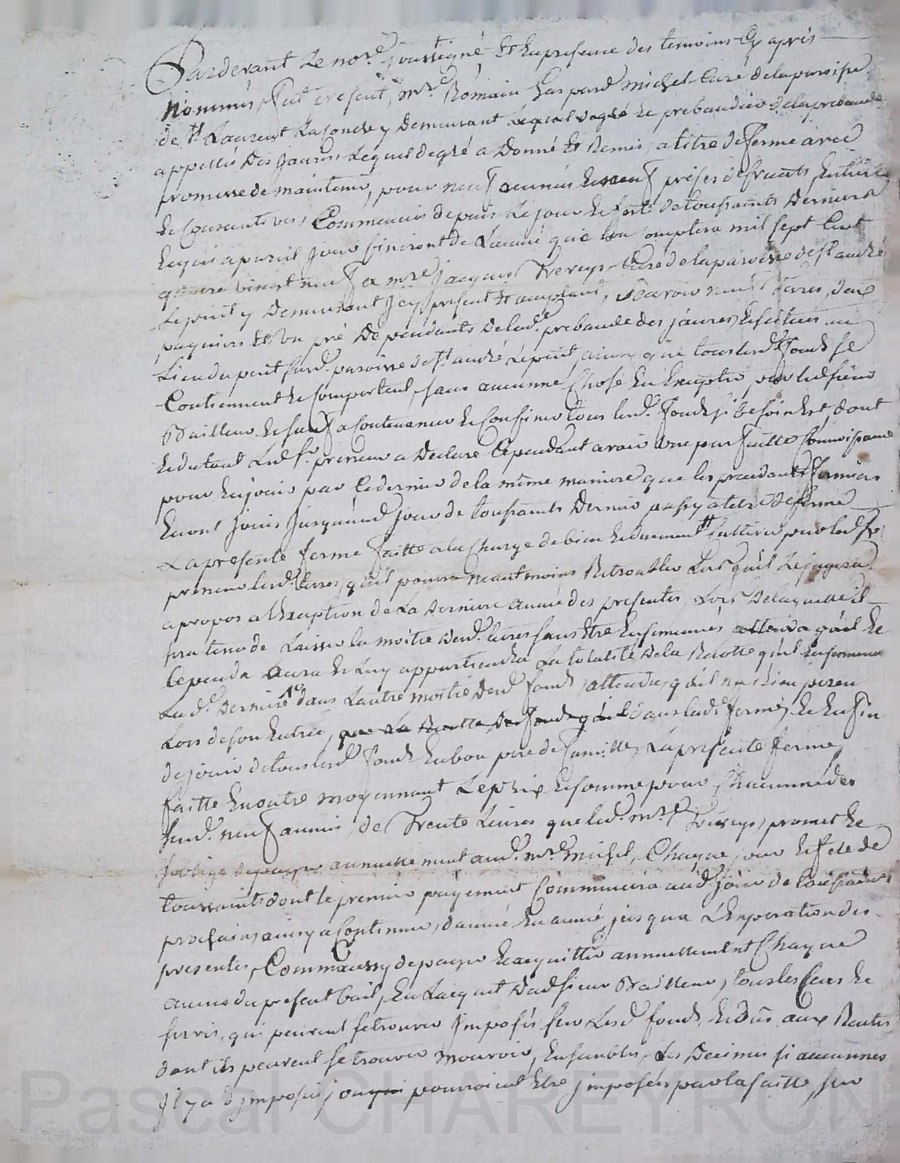 Pardevant Le no.re soussigné, Et En presence des temoins Cy apres
Nommés, fut present, m.re Romain Gaspard michel Curé de la paroisse
de St Laurent La Conche y Demeurant Lequel de gré Le prebandier de la prebande
appellée Des jaures Lequel de gré a Donné Et Remis, a titre de ferme avec
promesse de maintenir, pour neuf années Et neuf prises de fruits, Entieres
Et Consecutives, Commencées depuis Le jour Et feste de toussaints Derniere
Et qui a pareil jour finiront de L'année que L'on Comptera mil sept Cent
quatre vingt neuf a m.re jacques Verrys Curé de la paroisse de St andré
Le puit y Demeurant Jcy present Et acceptant, sçavoir neuf terres, deux
paquiers Et Un pré Dependants de la d.e prebande des jaures, Et scitués au
Lieu du puit sur d. paroisse de St andré Le puit, ainsy que tous Lesd. fonds se
Contiennent Et Comportent, sans aucunne Chose En Excepter, par led. sieur
Bailleur, Et sauf a Contenancer Et Confiner tous Lesd. fonds si besoin Est, dont
Et du tout Led. sr. preneur a Declaré Cependant avoir Une parfaitte Connoissance
pour En jouir par Ce dernier de la même maniere que les precedents fermiers
En ont jouis jusqu'aud. jour de toussaints Dernier, aussy a titre de ferme
La presente ferme faitte a la Charge de bien Et duement Cultiver par led. sr.
preneur Lesd. terres, qu'il pourra neantmoins Retroubler Lors qu'il Le jugera
apropos a L'Exception de La Derniere année des presentes, Lors De laquelle il
sera tenu de Laisser la moitié desd. terres sans Etre Ensemencées attendu qu'il Le
Cependt. aura Et Luy appartiendra La totalité de la Recolte qu'il Ensemencera
La d.e Derniere dans L'autre moitié desd. fonds, attendu, qu'il n'a Rien perçu
Lors de son Entrée, que La Recolte Des fonds qu'il dans lad. ferme, Et Enfin
de jouir de tous lesd. fonds En bon pere de famille, La presente ferme,
faitte En outre moyennant Le prix Et somme pour Chacunne des
susd. neuf années, de Trente Livres que led. m.re Verrys, promet Et
s'oblige de payer annuellement aud. m.re michel, Chaque jour Et feste de
toussaints dont le premier payement Commencera aud. jour de toussaints
prochain, ainsy a Continuer, d'année En année jusqu'a L'Expiration des
presentes, Comm'aussy de payer Et acquitter annuellement Chaque
année du present bail, En L'acquit Dud. sieur Bailleur, tous les Cens Et
servis, qui peuvent se trouver Imposés sur Lesd. fonds, Et Dus, aux Rentes
dont ils peuvent se trouver mouvoir, Ensembles, Les Decimes si aucunnes
Il y a d'imposés, ou qui pourroient Etre jmposées par la suitte, sur
Pascal CHAREYRON